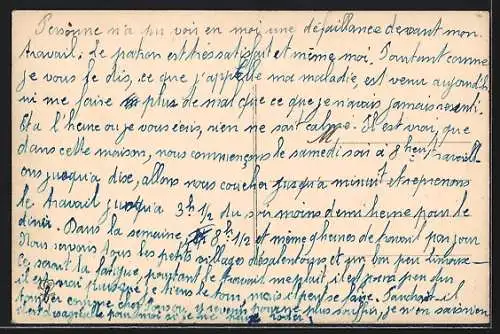 Personne n'a pu voir en moi une défaillance devant mon
travail. Le patron est très satisfait et même moi. Pourtant comme
je vous le dis, ce que j'appelle moi maladie, est venu aujourd'h
ui me faire plus de mal que ce que je n'avais jamais ressenti.
Et a l'heure ou je vous écris, rien ne sait calmé. Il est vrai, que
dans cette maison, nous commençons le samedi soir à 8 heures travaill
ons jusqu'a dix, allons nous coucher jusqu'a minuit et reprenons
le travail jusqu'a 3h 1/2 du soir moins demi heure pour le
diner. Dans la semaine 8h 1/2 et même 9 heures de travail par jour
Nous servons tous les petits villages des alentours et qui
Ce serait la fatigue, pourtant le travail me plait, il est
il est vrai puisque je tiens le four, mais il peu se faire
tomber comme chez pour ne plus souffrir, je n'en sais rien
il est désagréable pour moi si je me